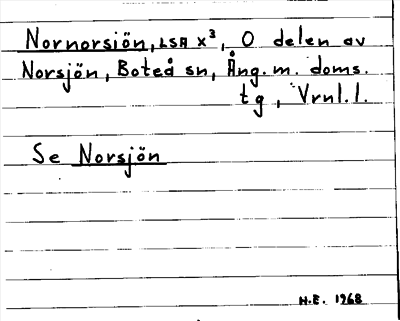 Nornorsjön, LSA X³, O delen av
Norsjön, Boteå sn, Ång. m. doms.
tg, Vrnl.l.
Se Norsjön
H.E. 1968